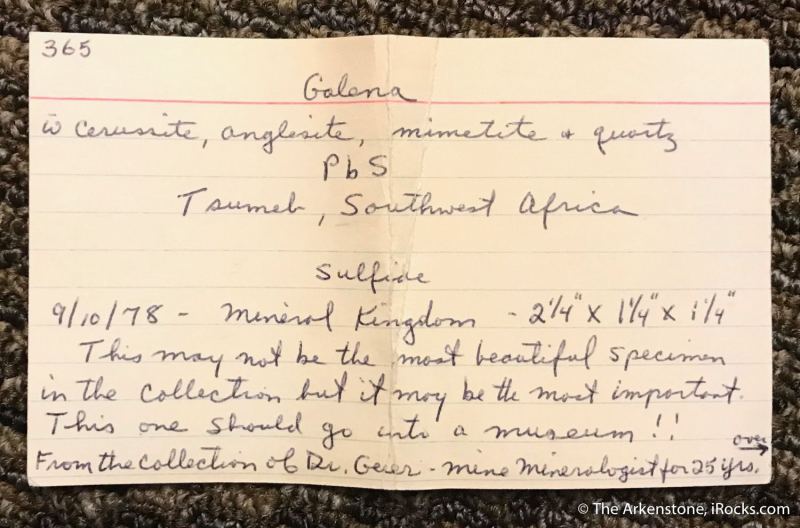 365
Galena
w̄ cerussite, anglesite, mimetite + quartz
PbS
Tsumeb, Southwest Africa
Sulfide
9/10/78 - Mineral Kingdom - 2 1/4" X 1 1/4" X 1 1/4"
This may not be the most beautiful specimen
in the collection but it may be the most important.
This one should go into a museum!!
over →
From the collection of Dr. Geier - mine mineralogist for 25 yrs.
© The Arkenstone, iRocks.com